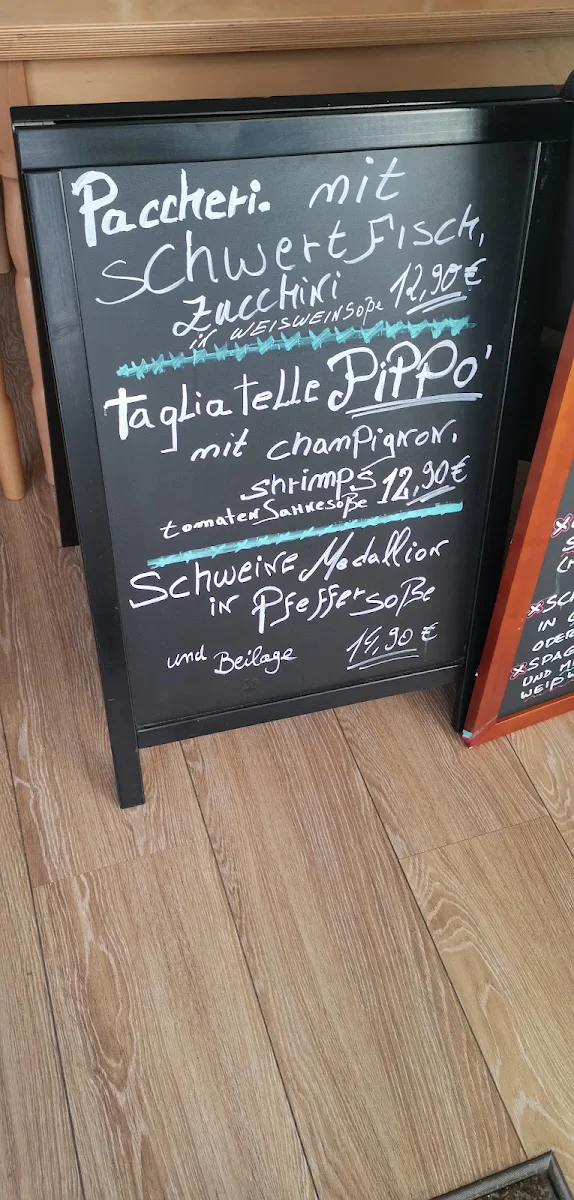 Paccheri. mit
Schwertfisch,
Zucchini
in WEISWEINSOßE 12,90 €
Tagliatelle PiPPO'
mit champignon,
shrimps 12,90 €
tomatenSahnesoße
Schweine Medallion
in Pfeffersoße
und Beilage 14,90 €
IN
ODER
SPAG
UND M
WEIßW